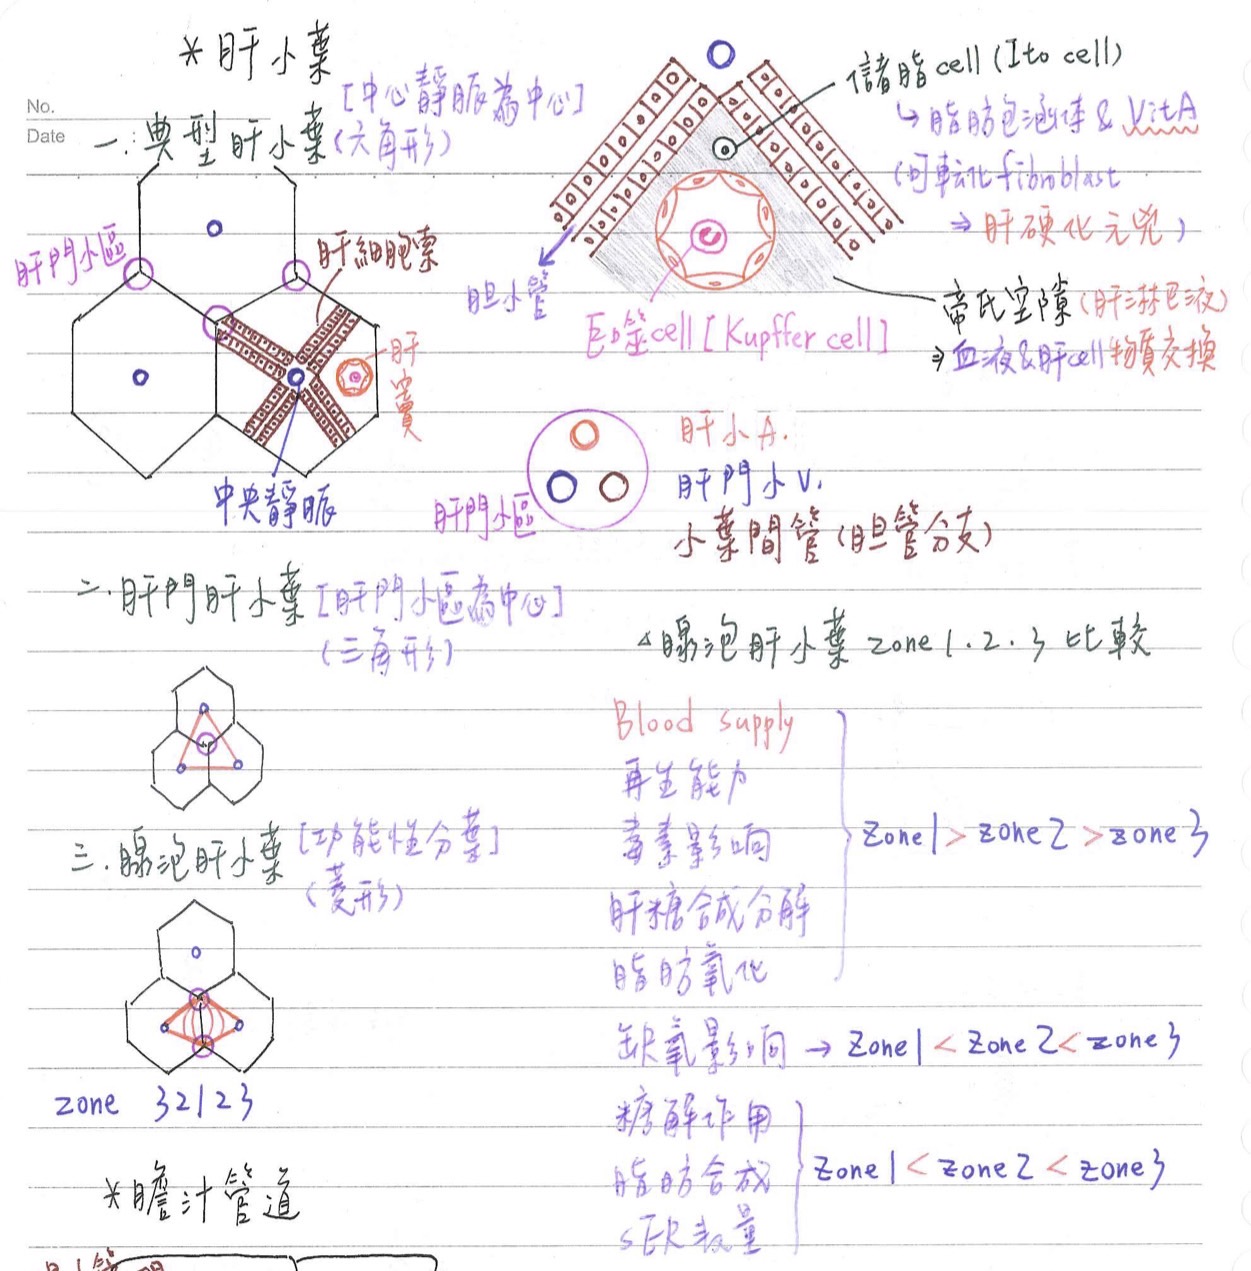 *肝小葉
No.
Date :
一.典型肝小葉[中心靜脈為中心]
(六角形)
肝門小區
肝細胞索
肝竇
中央靜脈
儲脂cell(Ito cell)
↳脂肪包涵体 & VitA
(可転化fibroblast
⇒肝硬化元兇)
胆小管
巨噬cell[Kupffer cell]
帝氏空隙(肝淋巴液)
⇒血液&肝cell物質交換
肝門小區
肝小A.
肝門小V.
小葉間管(胆管分支)
二.肝門肝小葉[肝門小區為中心]
(三角形)
三.腺泡肝小葉[功能性分葉]
(菱形)
zone 32123
△腺泡肝小葉 zone 1.2.3 比較
Blood supply
再生能力
毒素影响
肝糖合成分解
脂肪氧化
zone1>zone2>zone3
缺氧影响→zone1<zone2<zone3
糖解作用
脂肪合成
sER数量
zone1<zone2<zone3
*膽汁管道